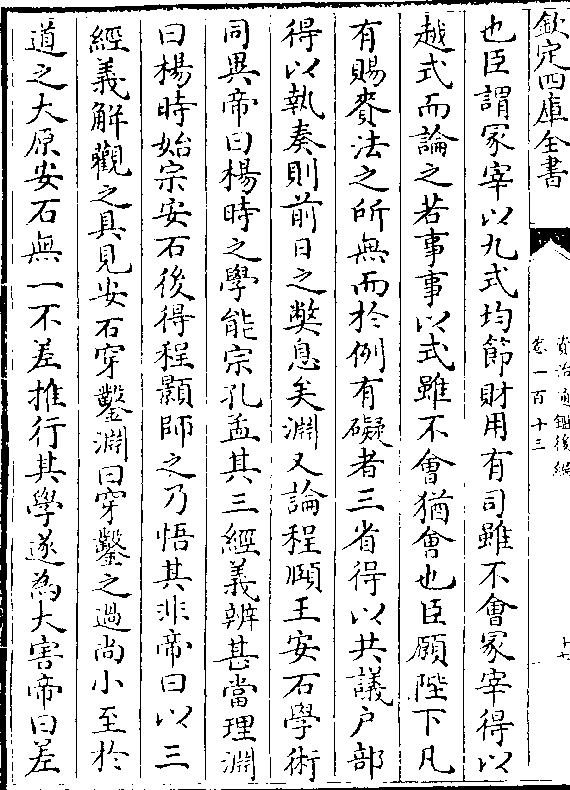 欽定四庫全書
資治通鑑後編
卷一百十三
也臣謂冢宰以九式均節財用有司雖不會冢宰得以
越式而論之若事事以式雖不會猶會也臣願陛下凡
有賜賚法之所無而於例有礙者三省得以共議户部
得以執奏則前日之弊息矣淵又論程頤王安石學術
同異帝曰楊時之學能宗孔孟其三經義辨甚當理淵
曰楊時始宗安石後得程顥師之乃悟其非帝曰以三
經義解觀之具見安石穿鑿淵曰穿鑿之過尚小至於
道之大原安石無一不差推行其學遂為大害帝曰差